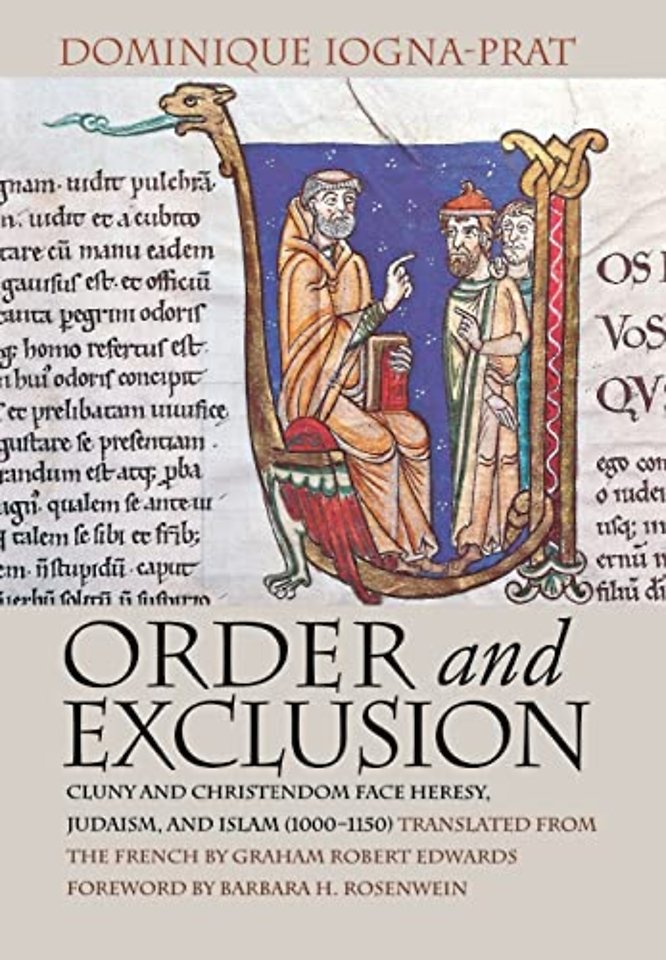 DOMINIQUE IOGNA-PRAT
gnam. uidit pulchrã
n. uidit et a cubito
tare cũ manu eadem
gauisus est. et officiũ
tanta pegrini odoris
homo refertus est.
odoris concipit
et prelibatam uiuifice
gustare se presentiam
randum est atq; pba
qualem se ante ui
talem se sibi et
em. stupidũ caput
OS
VOS
QV
ego con
o iudei
usq; in
ernũ
filiũ di
ORDER and
EXCLUSION
CLUNY AND CHRISTENDOM FACE HERESY,
JUDAISM, AND ISLAM (1000–1150) TRANSLATED FROM
THE FRENCH BY GRAHAM ROBERT EDWARDS
FOREWORD BY BARBARA H. ROSENWEIN